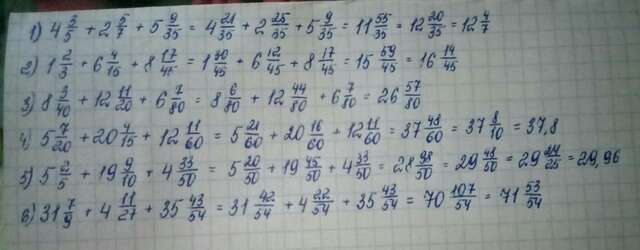 1) 4 3/5 + 2 5/7 + 5 9/35 = 4 21/35 + 2 25/35 + 5 9/35 = 11 55/35 = 12 20/35 = 12 4/7
2) 1 2/3 + 6 4/15 + 8 17/45 = 1 30/45 + 6 12/45 + 8 17/45 = 15 59/45 = 16 14/45
3) 8 3/40 + 12 11/20 + 6 7/80 = 8 6/80 + 12 44/80 + 6 7/80 = 26 57/80
4) 5 7/20 + 20 4/15 + 12 11/60 = 5 21/60 + 20 16/60 + 12 11/60 = 37 48/60 = 37 8/10 = 37,8
5) 5 2/5 + 19 9/10 + 4 33/50 = 5 20/50 + 19 45/50 + 4 33/50 = 28 98/50 = 29 48/50 = 29 24/25 = 29,96
6) 31 7/9 + 4 11/27 + 35 43/54 = 31 42/54 + 4 22/54 + 35 43/54 = 70 107/54 = 71 53/54